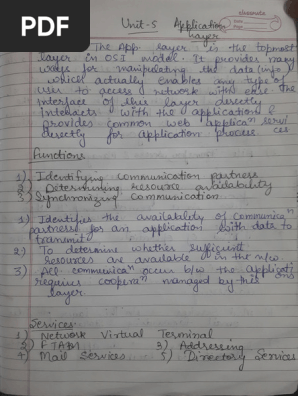 PDF
classmate
Unit-5 Application
Layer
The App layer is the topmost
layer in OSI model. It provides many
ways for manipulating the data (info)
which actually enables any type of
user to access network with ease. The
Interface of this layer directly
Interacts with the application &
provides common web applicaⁿ servi
directly for application process ces
Functions
1) Identifying communication partners
2) Determining resource availability
3) Synchronizing Communication
1) Identifies the availability of communicaⁿ
partners for an application with data to
transmit
2) To determine whether sufficient
resources are available in the n/w
3) All communicaⁿ occur b/w the applicati
requires cooperaⁿ managed by this ons
layer
Services
1) Network Virtual Terminal
2) FTAM 3) Addressing
4) Mail Services 5) Directory Services